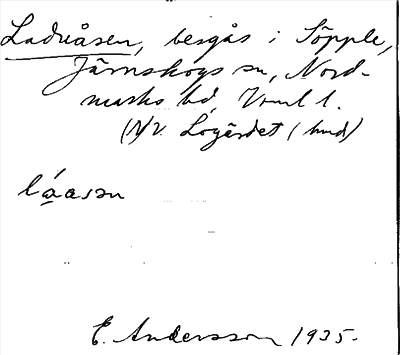 Laduåsen, bergås i Söpple,
Järnskogs sn, Nord-
marks hd, Vrml l.
(NV. Logärdet (bmd)
láasən
E. Andersson 1935.